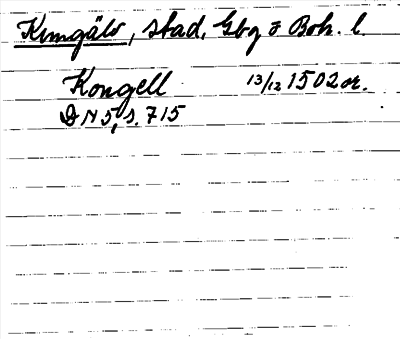 Kungälv, stad, Gbg o Boh. l.
Kongell 13/12 1502 or.
DN 5, s. 715